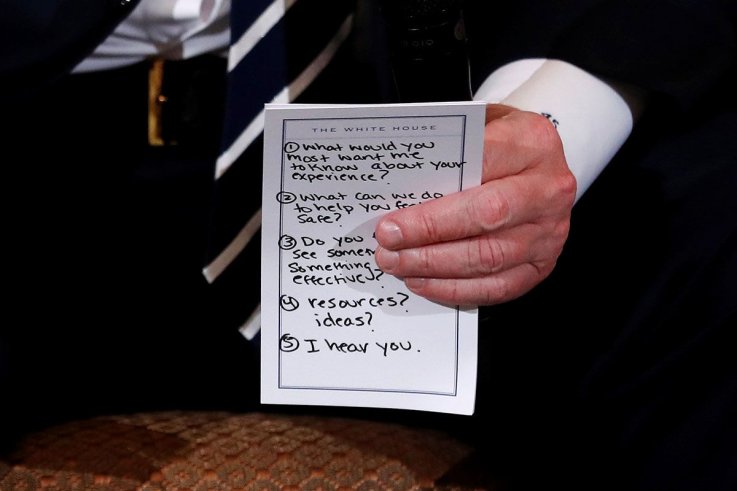 THE WHITE HOUSE
① What would you
most want me
to know about your
experience?
② What can we do
to help you
safe?
③ Do you
see
Something
effective?
④ resources?
ideas?
⑤ I hear you.